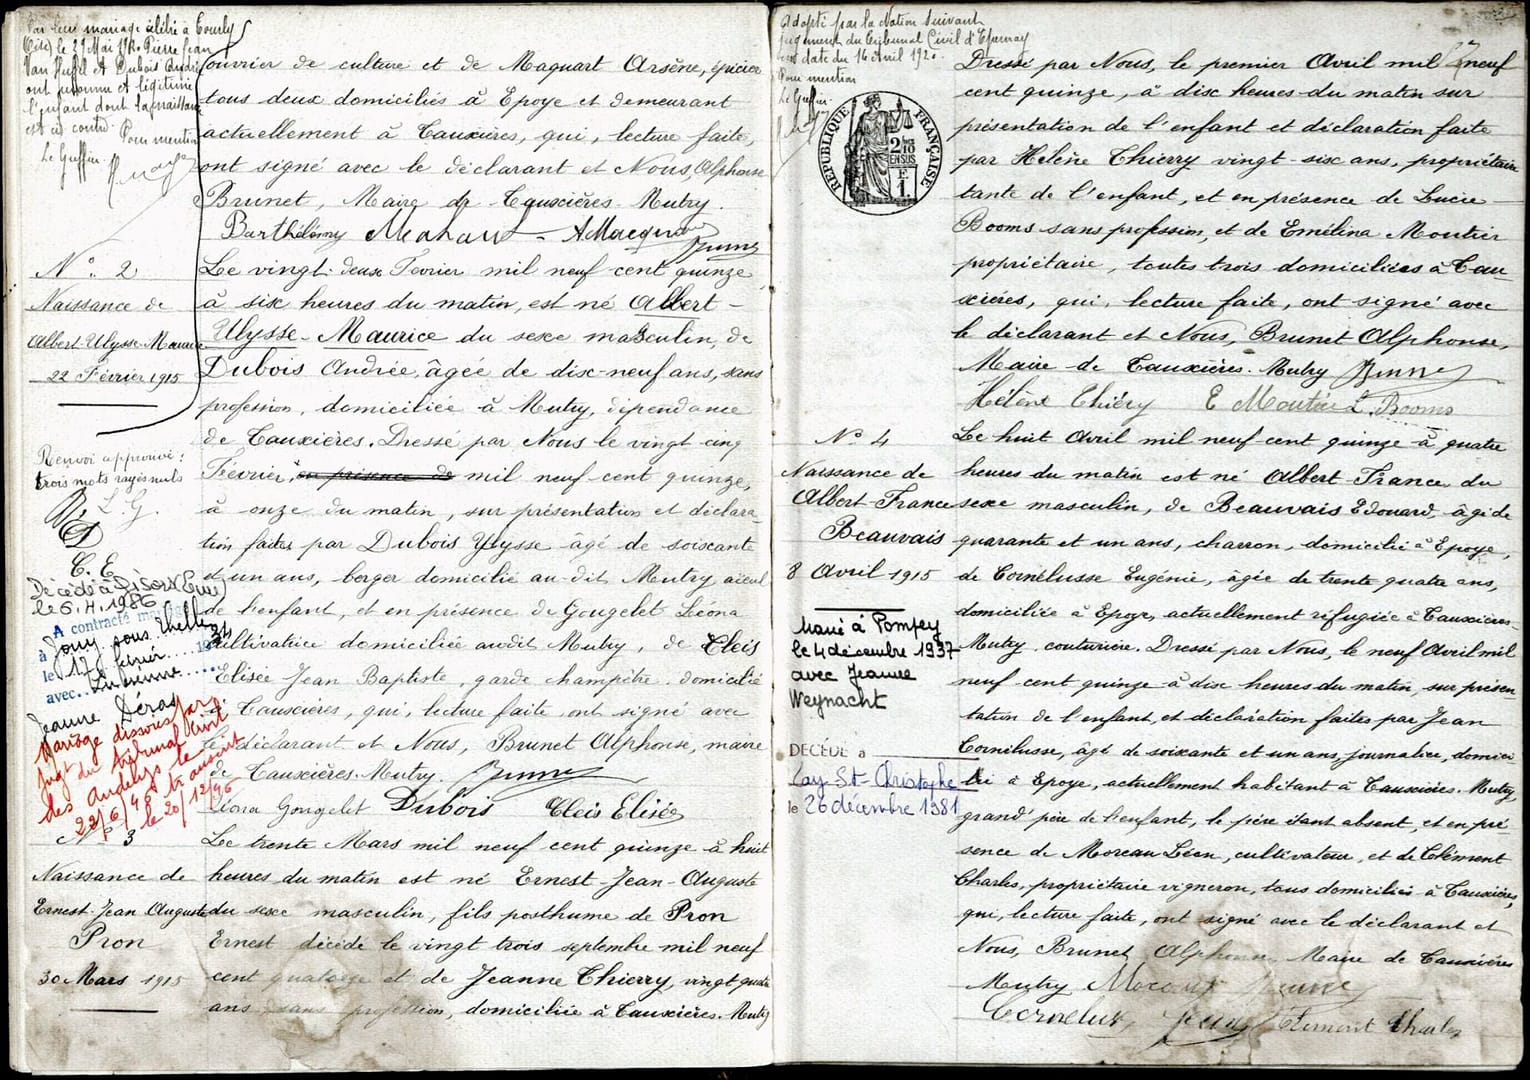 Par leur mariage célébré à
le 29 Mai Pierre Jean
Van et Dubois Andrée
ont reconnu et légitimé
l'enfant dont la naissance
est ci contre. Pour mention
Le Greffier
ouvrier de culture et de Maquart Arsène, épicier
tous deux domiciliés à Epoye et demeurant
actuellement à Tauxières, qui, lecture faite,
ont signé avec le déclarant et Nous, Alphonse
Brunet, Maire de Tauxières-Mutry.
Barthélémy Mahaut A Macquart
Brunet
N° 2
Naissance de
Albert-Ulysse-Maurice
22 Février 1915
Le vingt-deux Février mil neuf cent quinze
à six heures du matin, est né Albert-
Ulysse-Maurice du sexe masculin, de
Dubois Andrée, âgée de dix-neuf ans, sans
profession, domiciliée à Mutry, dépendance
de Tauxières. Dressé par Nous le vingt cinq
Février, en présence de mil neuf cent quinze,
à onze du matin, sur présentation et déclara-
tion faites par Dubois Ulysse âgé de soixante
et un ans, berger domicilié au dit Mutry aïeul
de l'enfant, et en présence de Gougelet Léona
cultivatrice domiciliée audit Mutry, de Cleis
Elisée Jean Baptiste, garde champêtre, domicilié
à Tauxières, qui, lecture faite, ont signé avec
le déclarant et Nous, Brunet Alphonse, maire
de Tauxières-Mutry. Brunet
Léona Gougelet Dubois Cleis Elisée
Renvoi approuvé:
trois mots rayés nuls
L. G.
B
D
C. E
Décédé à Gisors (Eure)
le 6.4.1986
A contracté mariage
à Jouy sous Thelle
le 17 février 1934
avec Lucienne
Jeanne Déras
Mariage dissous par
jugt du tribunal civil
des Andelys le
22/6/48 transcrit
le 20/12/46
N° 3
Naissance de
Ernest-Jean Auguste
Pron
30 Mars 1915
Le trente Mars mil neuf cent quinze à huit
heures du matin est né Ernest-Jean-Auguste
du sexe masculin, fils posthume de Pron
Ernest décédé le vingt trois septembre mil neuf
cent quatorze et de Jeanne Thierry, vingt quatre
ans, sans profession, domiciliée à Tauxières-Mutry
Adopté par la Nation suivant
jugement du Tribunal Civil d'Epernay
en date du 16 Avril 1920.
Pour mention
Le Greffier
RÉPUBLIQUE FRANÇAISE
2/10 EN SUS
E
1.
Dressé par Nous, le premier Avril mil neuf
cent quinze, à dix heures du matin sur
présentation de l'enfant et déclaration faite
par Hélène Thierry vingt-six ans, propriétaire
tante de l'enfant, et en présence de Lucie
Booms sans profession, et de Emélina Moutier
propriétaire, toutes trois domiciliées à Tau-
xières, qui, lecture faite, ont signé avec
le déclarant et Nous, Brunet Alphonse,
Maire de Tauxières-Mutry Brunet
Hélène Thiéry E Moutier L. Booms
N° 4
Naissance de
Albert-France
Beauvais
8 Avril 1915
Marié à Pompey
le 4 décembre 1937
avec Jeanne
Weynacht
DÉCÉDÉ à
Lay St Christophe
le 26 décembre 1981
Le huit Avril mil neuf cent quinze à quatre
heures du matin est né Albert-France du
sexe masculin, de Beauvais Edouard, âgé de
quarante et un ans, charron, domicilié à Epoye,
de Cornélusse Eugénie, âgée de trente quatre ans,
domiciliée à Epoye, actuellement réfugiée à Tauxières-
Mutry, couturière. Dressé par Nous, le neuf Avril mil
neuf cent quinze à dix heures du matin, sur présen
tation de l'enfant, et déclaration faites par Jean
Cornélusse, âgé de soixante et un ans, journalier, domici
lié à Epoye, actuellement habitant à Tauxières-Mutry,
grand' père de l'enfant, le père étant absent, et en pré-
sence de Moreau Léon, cultivateur, et de Clément
Charles, propriétaire vigneron, tous domiciliés à Tauxières,
qui, lecture faite, ont signé avec le déclarant et
Nous, Brunet Alphonse, Maire de Tauxières
Mutry Moreau Brunet
Cornelus, Jean Clement Charles